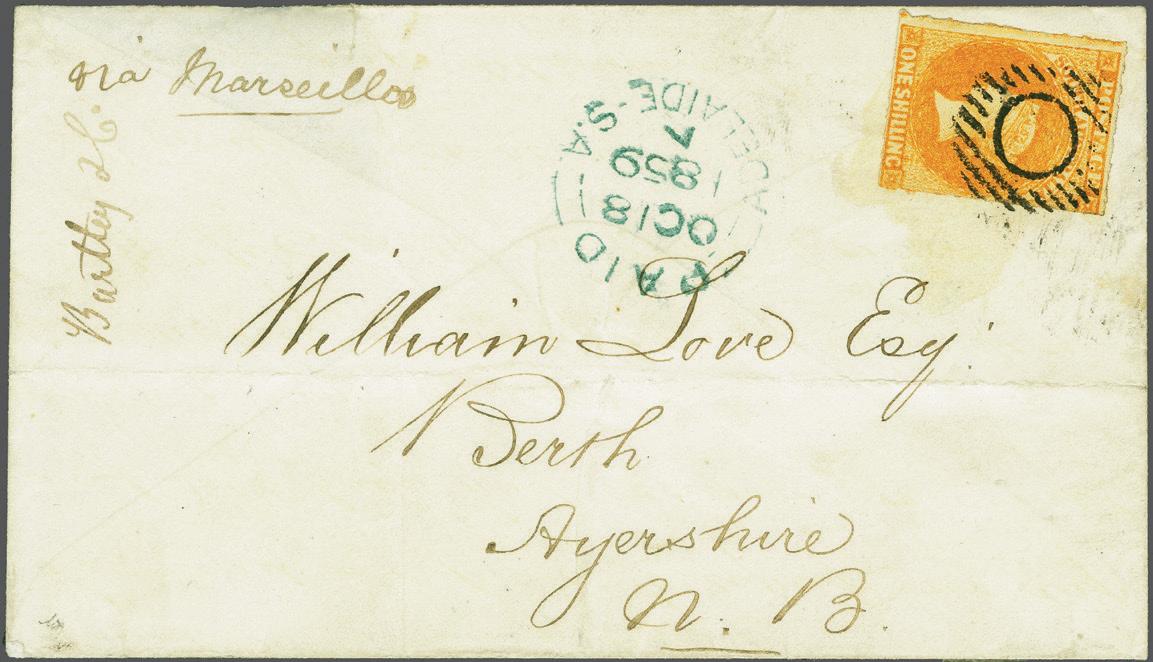 via Marseilles
Bartley & Co.
ADELAIDE - S.A.
7
1859
OC 18
PAID
POSTAGE
ONE SHILLING
William Love Esq.
Berth
Ayershire
N. B.